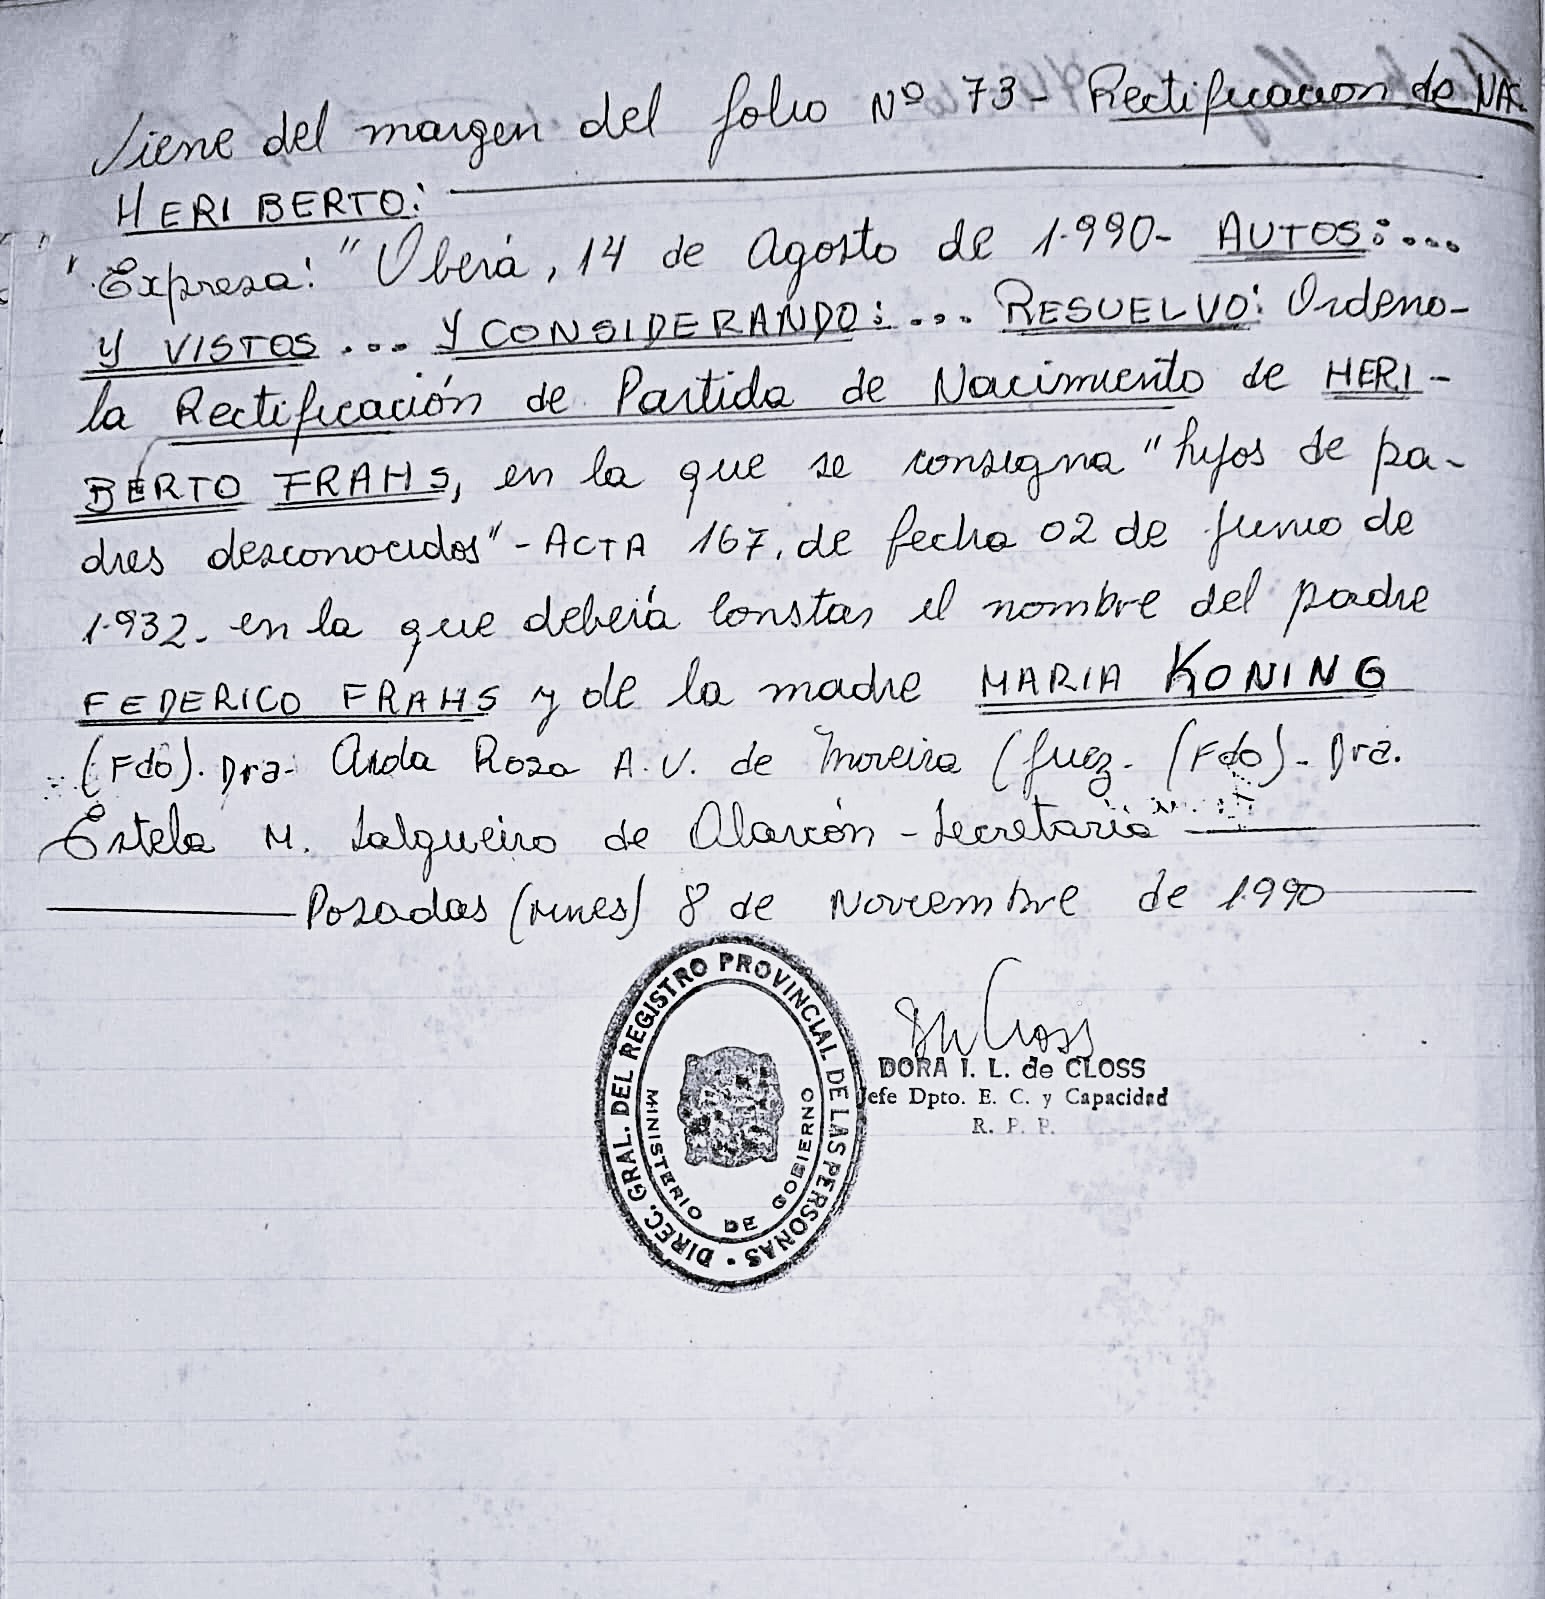 Viene del margen del folio Nº 73- Rectificacion de NAC.
HERIBERTO:
Expresa: "Oberá, 14 de Agosto de 1.990- AUTOS:...
Y VISTOS... Y CONSIDERANDO:... RESUELVO: Ordeno-
la Rectificación de Partida de Nacimiento de HERI-
BERTO FRAHS, en la que se consigna "hijos de pa-
dres desconocidos"- ACTA 167, de fecha 02 de junio de
1.932. en la que deberá constar el nombre del padre
FEDERICO FRAHS y de la madre MARIA KONING
(Fdo). Dra. Aida Rosa A.V. de Moreira (Juez. (Fdo)- Dra.
Estela M. Salgueiro de Alarcón - Secretaria
Posadas (Mnes) 8 de Noviembre de 1990
DIREC. GRAL. DEL REGISTRO PROVINCIAL DE LAS PERSONAS
MINISTERIO DE GOBIERNO
DORA I. L. de CLOSS
Jefe Dpto. E. C. y Capacidad
R. P. P.